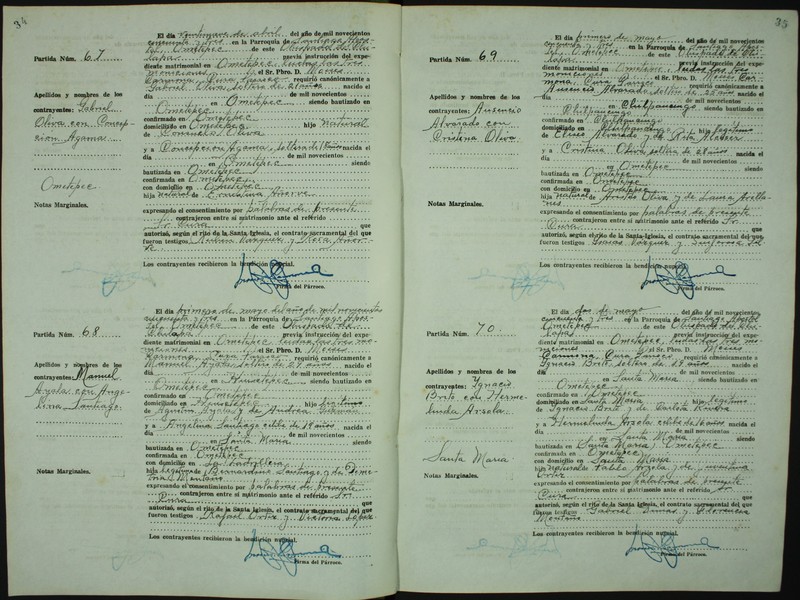 34
Partida Núm. 67
Apellidos y nombres de los
contrayentes: Gabriel
Oliva con Concep-
ción Agama
Ometepec
Notas Marginales.
El día veintinueve de abril del año de mil novecientos
cincuenta y tres en la Parroquia de Santiago Após-
tol Ometepec de este Obispado de Chi-
lapa previa instrucción del expe-
diente matrimonial en Ometepec leidas las tres
moniciones el Sr. Pbro. D. Moises
Carmona Cura Parroco requirió canónicamente a
Gabriel Oliva soltero de 21 años nacido el
día de mil novecientos
en Ometepec siendo bautizado en
Ometepec
confirmado en Ometepec
domiciliado en Ometepec hijo natural
de Oliva
y a Concepción Agama, soltera de años nacida el
día de mil novecientos
en Ometepec siendo
bautizada en Ometepec
confirmada en Ometepec
con domicilio en Ometepec
hija natural de
expresando el consentimiento por palabras de presente
contrajeron entre sí matrimonio ante el referido
Sr. Cura que
autorizó, según el rito de la Santa Iglesia, el contrato sacramental del que
fueron testigos Vázquez y Rosa
Los contrayentes recibieron la bendición nupcial.
Firma del Párroco.
Partida Núm. 68
Apellidos y nombres de los
contrayentes: Manuel
Ayala con Ange-
lina Santiago.
Notas Marginales.
El día primero de mayo del año de mil novecientos
cincuenta y tres en la Parroquia de Santiago Após-
tol Ometepec de este Obispado de
Chilapa previa instrucción del expe-
diente matrimonial en Ometepec leidas las tres mo-
niciones el Sr. Pbro. D. Moises
Carmona, Cura Parroco requirió canónicamente a
Manuel Ayala soltero de 29 años nacido el
día de mil novecientos
en siendo bautizado en
Ometepec
confirmado en Ometepec
domiciliado en hijo legítimo
de Agustín Ayala y de Andrea Guzmán
y a Angelina Santiago célibe de 18 años nacida el
día de mil novecientos
en Santa María siendo
bautizada en Ometepec
confirmada en Ometepec
con domicilio en
hija legítima de Bernardino Santiago y de
Montaño
expresando el consentimiento por palabras de presente
contrajeron entre sí matrimonio ante el referido Sr.
Cura que
autorizó, según el rito de la Santa Iglesia, el contrato sacramental del que
fueron testigos Rafael Ortiz y Victoria López
Los contrayentes recibieron la bendición nupcial.
Firma del Párroco.
35
Partida Núm. 69
Apellidos y nombres de los
contrayentes: Ausencio
Alvarado con
Cristina Oliva
Notas Marginales.
El día primero de mayo del año de mil novecientos
cincuenta y tres en la Parroquia de Santiago Após-
tol Ometepec de este Obispado de Chi-
lapa previa instrucción del expe-
diente matrimonial en Ometepec leidas las tres
moniciones el Sr. Pbro. D. Moises Car-
mona, Cura Parroco requirió canónicamente a
Ausencio Alvarado soltero de 25 años nacido el
día de mil novecientos
en Chilpancingo siendo bautizado en
Chilpancingo
confirmado en Chilpancingo
domiciliado en Chilpancingo hijo legítimo
de Alvarado y de Rita
y a Cristina Oliva soltera de años nacida el
día de mil novecientos
en Ometepec siendo
bautizada en Ometepec
confirmada en Ometepec
con domicilio en Ometepec
hija natural de Arnulfo Oliva y de Laura Arella-
nes
expresando el consentimiento por palabras de presente
contrajeron entre sí matrimonio ante el referido Sr.
Cura que
autorizó, según el rito de la Santa Iglesia, el contrato sacramental del que
fueron testigos Vázquez y
Los contrayentes recibieron la bendición nupcial.
Firma del Párroco.
Partida Núm. 70
Apellidos y nombres de los
contrayentes: Ignacio
Brito con Herme-
linda Arzola
Santa María
Notas Marginales.
El día dos de mayo del año de mil novecientos
cincuenta y tres en la Parroquia de Santiago Apóstol
Ometepec de este Obispado de Chi-
lapa previa instrucción del expe-
diente matrimonial en Ometepec, leidas las tres mo-
niciones el Sr. Pbro. D. Moises
Carmona, Cura Parroco requirió canónicamente a
Ignacio Brito soltero de 19 años nacido el
día de mil novecientos
en Santa María siendo bautizado en
Ometepec
confirmado en Ometepec
domiciliado en Santa María hijo legítimo
de Ignacio Brito y de
y a Hermelinda Arzola célibe de 16 años nacida el
día de mil novecientos
en Santa María siendo
bautizada en Santa María, Ometepec
confirmada en Ometepec
con domicilio en Santa María
hija natural de Pablo Arzola y de
Ortiz
expresando el consentimiento por palabras de presente
contrajeron entre sí matrimonio ante el referido Sr.
Cura que
autorizó, según el rito de la Santa Iglesia, el contrato sacramental del que
fueron testigos Gabriel y
Montaño
Los contrayentes recibieron la bendición nupcial.
Firma del Párroco.